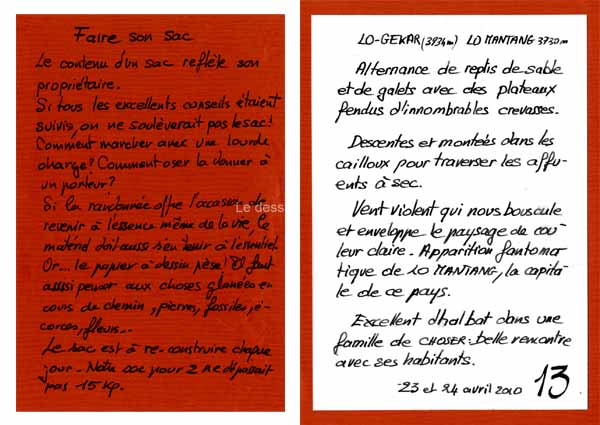 Faire son sac
Le contenu d'un sac reflète son
propriétaire.
Si tous les excellents conseils étaient
suivis, on ne soulèverait pas le sac!
Comment marcher avec une lourde
charge? Comment oser la donner à
un porteur?
Si la randonnée offre l'occasion de
revenir à l'essence même de la vie, le
matériel doit aussi s'en tenir à l'essentiel.
Or... le papier à dessin pèse! Il faut
aussi penser aux choses glanées en
cours de chemin, pierres, fossiles, é-
corces, fleurs...
Le sac est à re-construire chaque
jour. Notre sac pour 2 ne dépassait
pas 15 kg.
Le dess
LO-GEKAR (3934m) LO MANTANG 3730m
Alternance de replis de sable
et de galets avec des plateaux
fendus d'innombrables crevasses.
Descentes et montées dans les
cailloux pour traverser les afflu-
ents à sec.
Vent violent qui nous bouscule
et enveloppe le paysage de cou-
leur claire. Apparition fantoma-
tique de LO MANTANG, la capita-
le de ce pays.
Excellent dhal bat dans une
famille de CHOSER: belle rencontre
avec ses habitants.
23 et 24 avril 2010 13